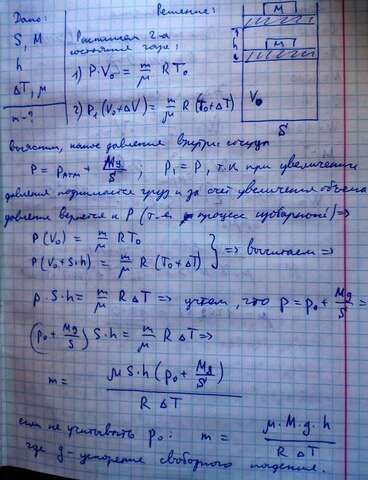 Дано:
S, M
h
ΔT, μ
m - ?
Решение:
Распишем 2-а
состояния газа:
1) P·V₀ = m/μ R T₀
2) P₁(V₀+ΔV) = m/μ R (T₀+ΔT)
M
h
M
V₀
S
выясним, какое давление внутри сосуда
P = Pатм + Mg/S ; P₁ = P, т.к. при увеличении
давления поднимается груз и за счет увеличения объема
давление вернется к P (т.е. процесс изобарный) =>
P(V₀) = m/μ R T₀
P(V₀+S·h) = m/μ R (T₀+ΔT) } => вычитаем =>
p·S·h = m/μ R ΔT => учтем, что p = p₀ + Mg/S =>
(p₀ + Mg/S) S·h = m/μ R ΔT =>
m = μ S·h (p₀ + Mg/S) / R ΔT
если не учитывать p₀: m = μ·M·g·h / R ΔT
где g - ускорение свободного падения.